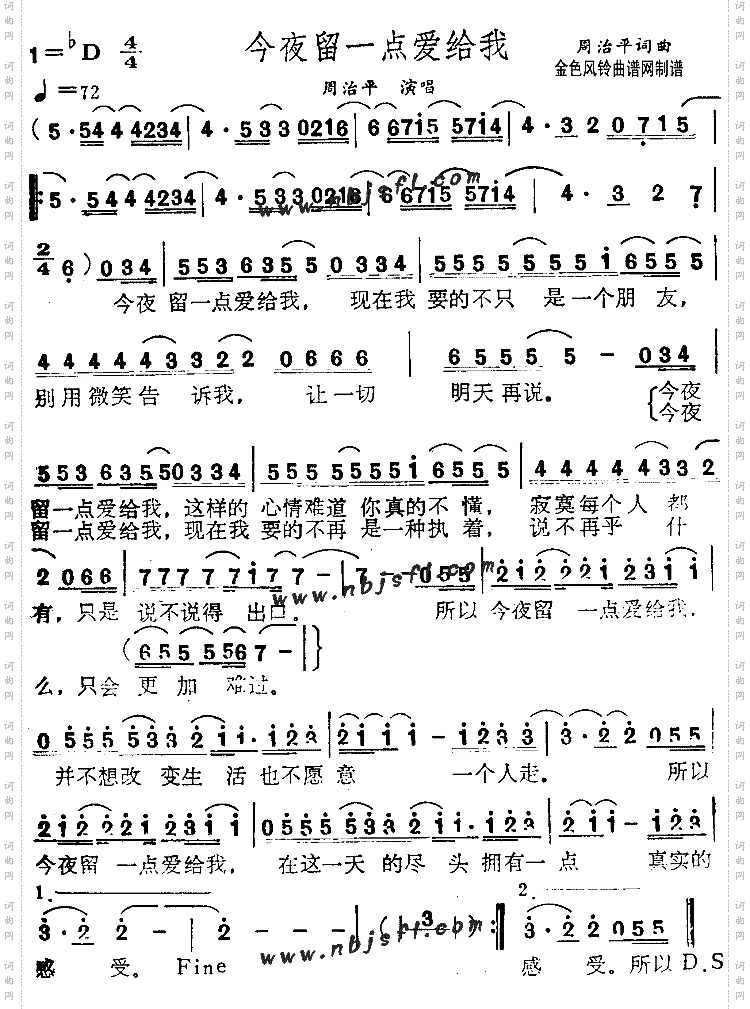 今夜留一点爱给我
1=♭D 4/4
周治平词曲
金色风铃曲谱网制谱
♩=72
周治平 演唱
(5·544 4234|4·533 0216|6 6715 5714|4·32 0 715|
5·544 4234|4·533 0216|6 6715 5714|4·3 2 7|
2/4 6)034|553635 5 0334|555 55551 6555|
今夜 留一点爱给我, 现在我 要的不只 是一个朋 友,
4 4 4 4 4 3 3 2 2 0 6 6 6|6 5 5 5 5 - 0 3 4|
别用微笑告 诉我, 让一切 明天再说。 今夜
今夜
553635 50334|555 55551 6555|4 4 4 4 4 3 3 2
留一点爱给我, 这样的 心情难道 你真的不 懂, 寂寞每个人 都
留一点爱给我, 现在我 要的不再 是一种执 着, 说不再乎 什
2 0 6 6|7 7 7 7 7 1 7 7 -|7 - - 0 5 5|2 1 2 2 2 1 2 3 1 1
有, 只是 说不说得 出口。 所以 今夜留 一点爱给我.
(655 5567 -|}
么, 只会 更加 难过。
0 555 5533 2 11·123|2111 - 123|3·2 2 055|
并不想改 变生 活 也不愿意 一个人走。 所以
212 2212311|0555 5532 11·123|211 - 155|
今夜留 一点爱给我, 在这一天 的尽 头 拥有一 点 真实的
1.
2.
3·2 2 -|2 - -|- -(♭3 -):‖3·2 2 055‖
感 受。 Fine
感 受。所以 D.S
www.nbjsfl.com
www.nbjsfl.com
www.nbjsfl.com
词曲网